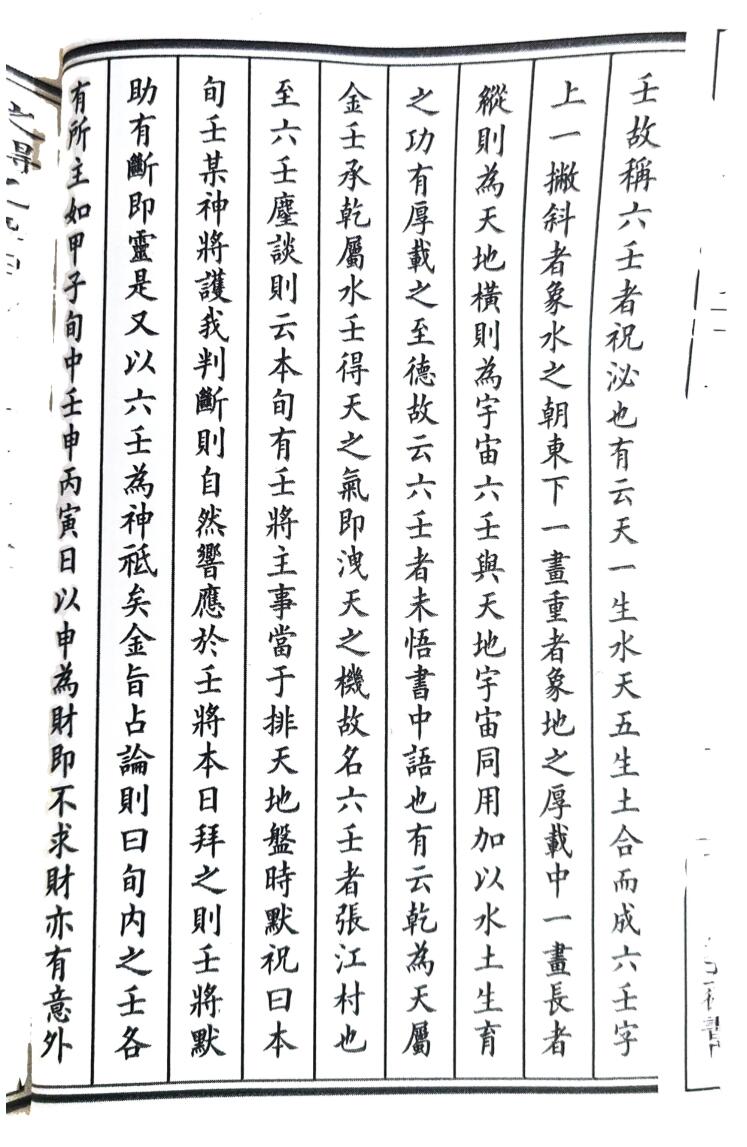 壬故稱六壬者祝泌也有云天一生水天五生土合而成六壬字
上一撇斜者象水之朝東下一畫重者象地之厚載中一畫長者
縱則為天地橫則為宇宙六壬與天地宇宙同用加以水土生育
之功有厚載之至德故云六壬者未悟書中語也有云乾為天屬
金壬承乾屬水壬得天之氣即洩天之機故名六壬者張江村也
至六壬塵談則云本旬有壬將主事當于排天地盤時默祝曰本
旬壬某神將護我判斷則自然響應於壬將本日拜之則壬將默
助有斷即靈是又以六壬為神祗矣金旨占論則曰旬內之壬各
有所主如甲子旬中壬申丙寅日以申為財即不求財亦有意外